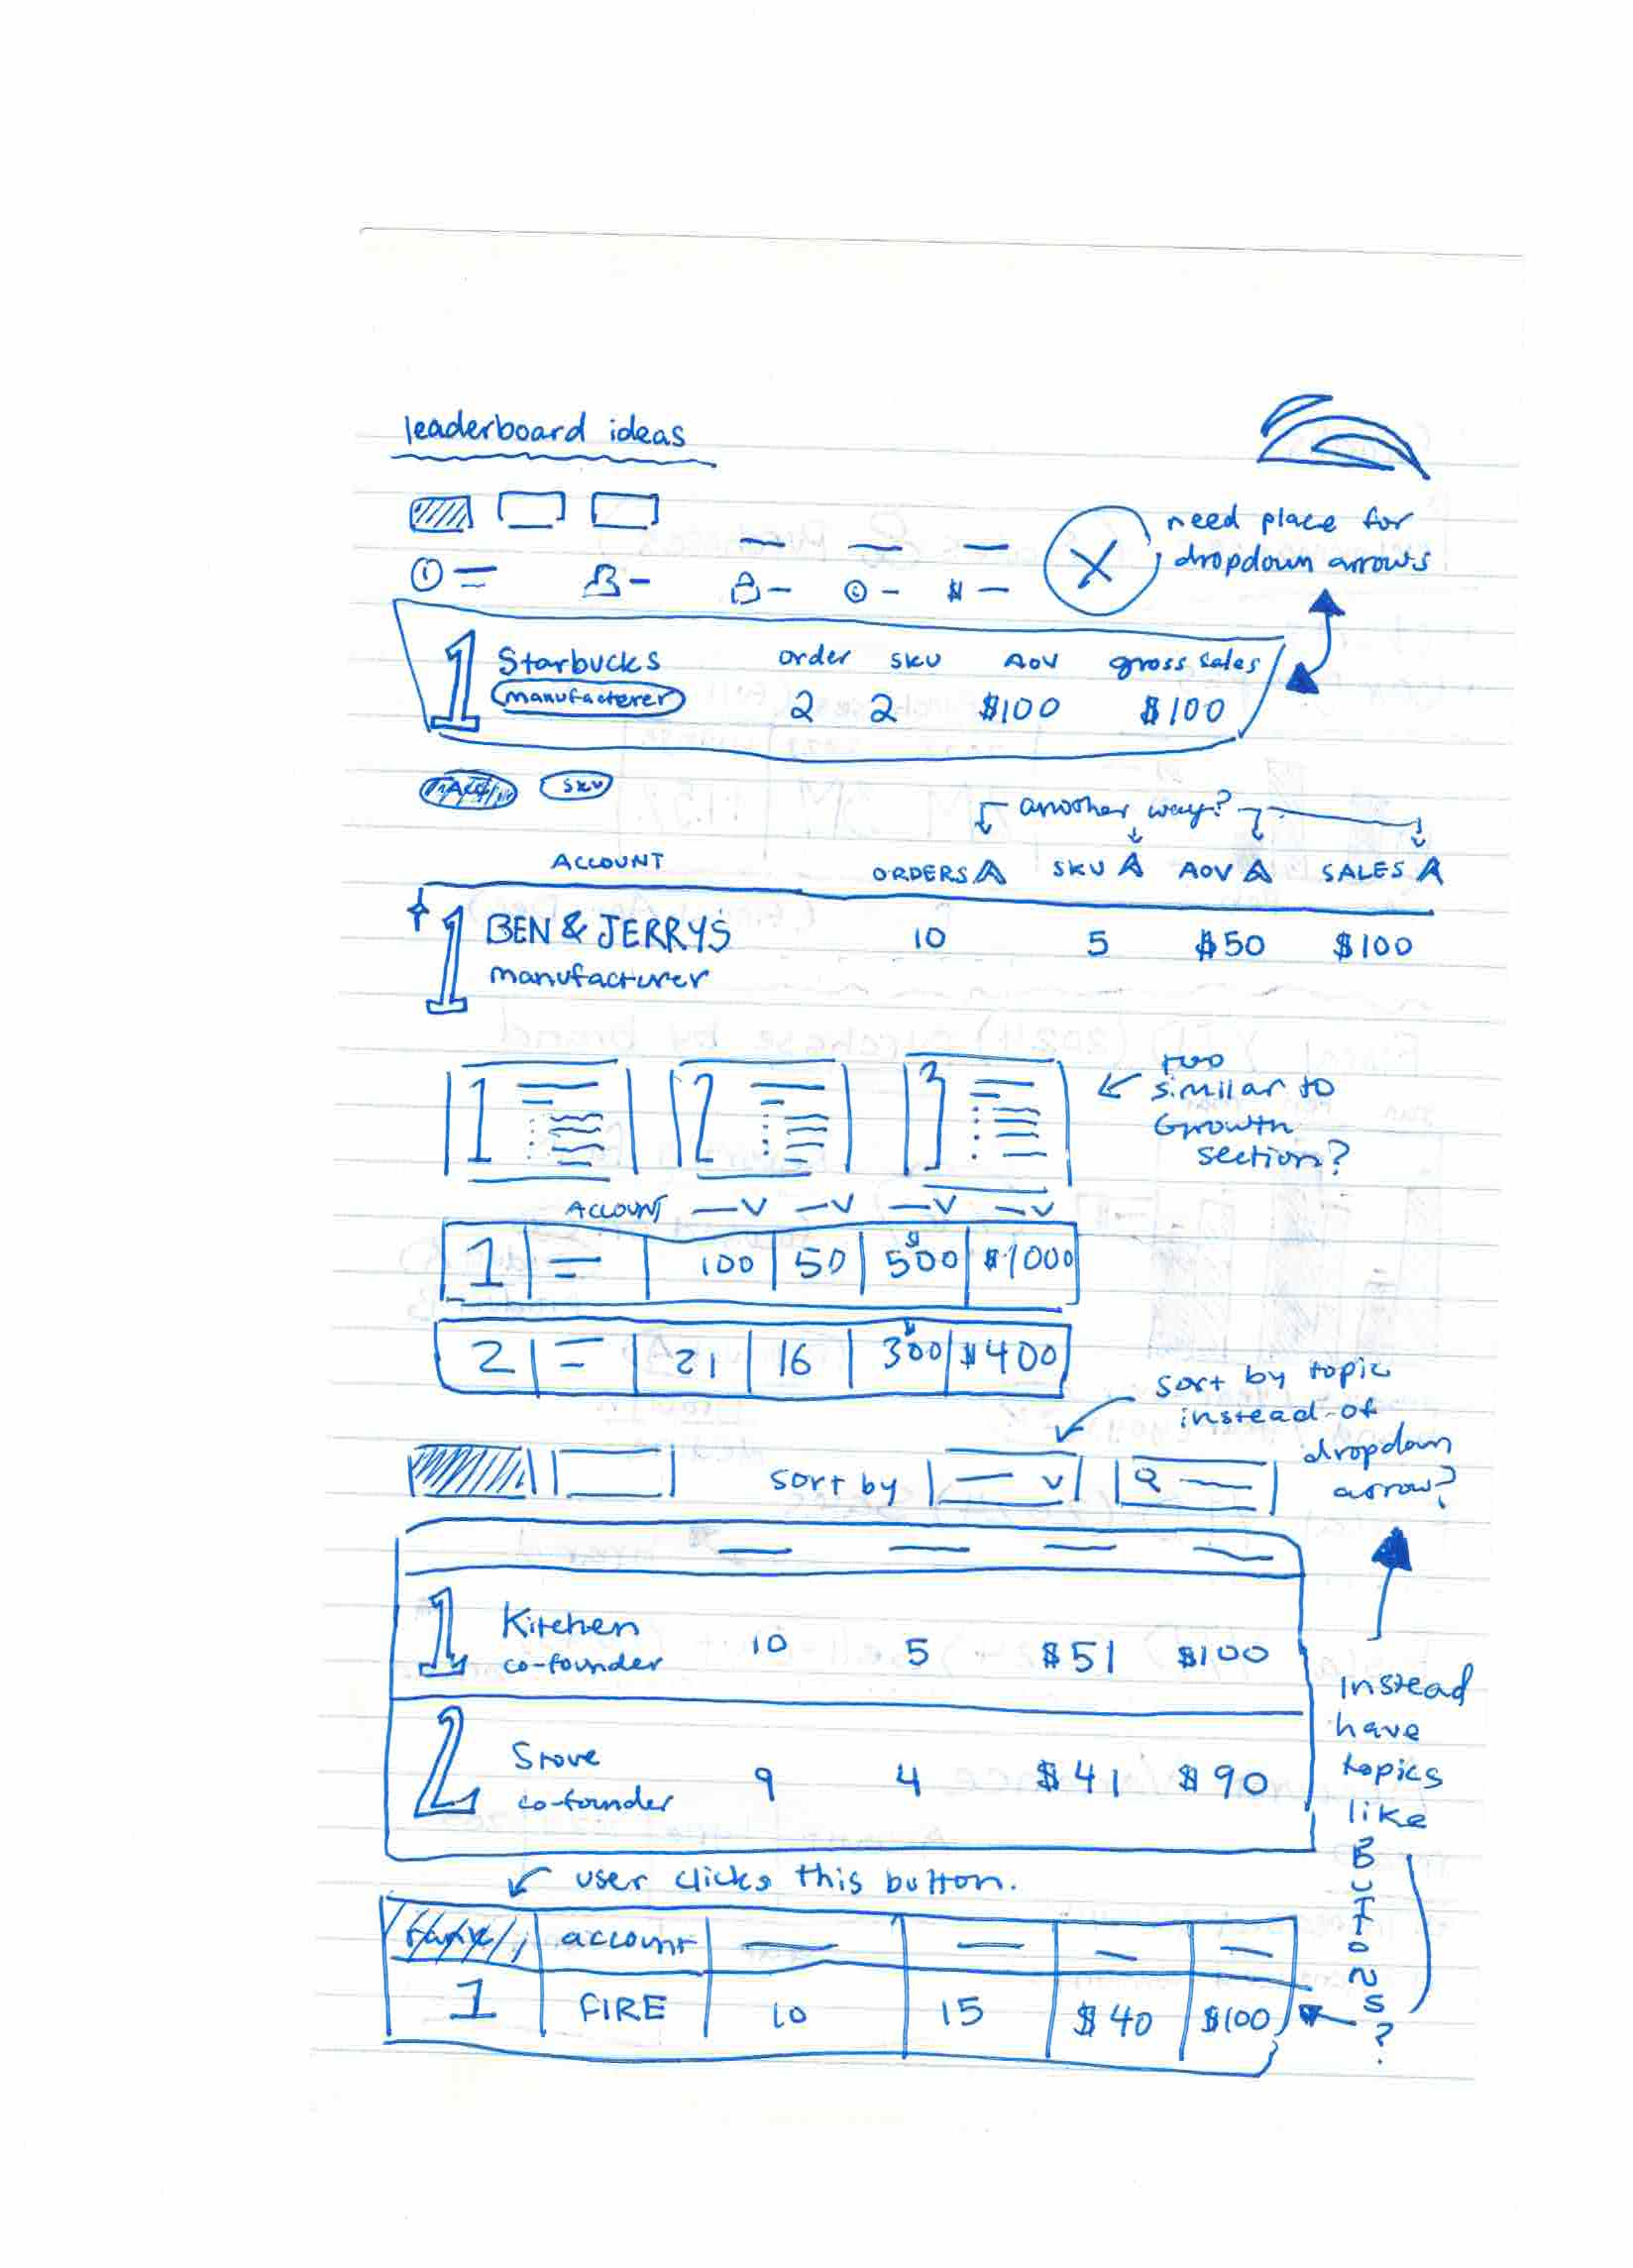 leaderboard ideas
need place for
dropdown arrows
1 Starbucks order SKU AOV gross sales
manufacturer 2 2 $100 $100
SKU
another way?
ACCOUNT ORDERS SKU AOV SALES
1 BEN & JERRYS 10 5 $50 $100
manufacturer
1 2 3
too
similar to
Growth
section?
ACCOUNT
1 100 50 500 $1000
2 21 16 300 $400
sort by topic
instead of
dropdown
arrow?
sort by
1 Kitchen 10 5 $51 $100
co-founder
2 Stove 9 4 $41 $90
co-founder
instead
have
topics
like
BUTTONS?
user clicks this button.
rank account
1 FIRE 10 15 $40 $100